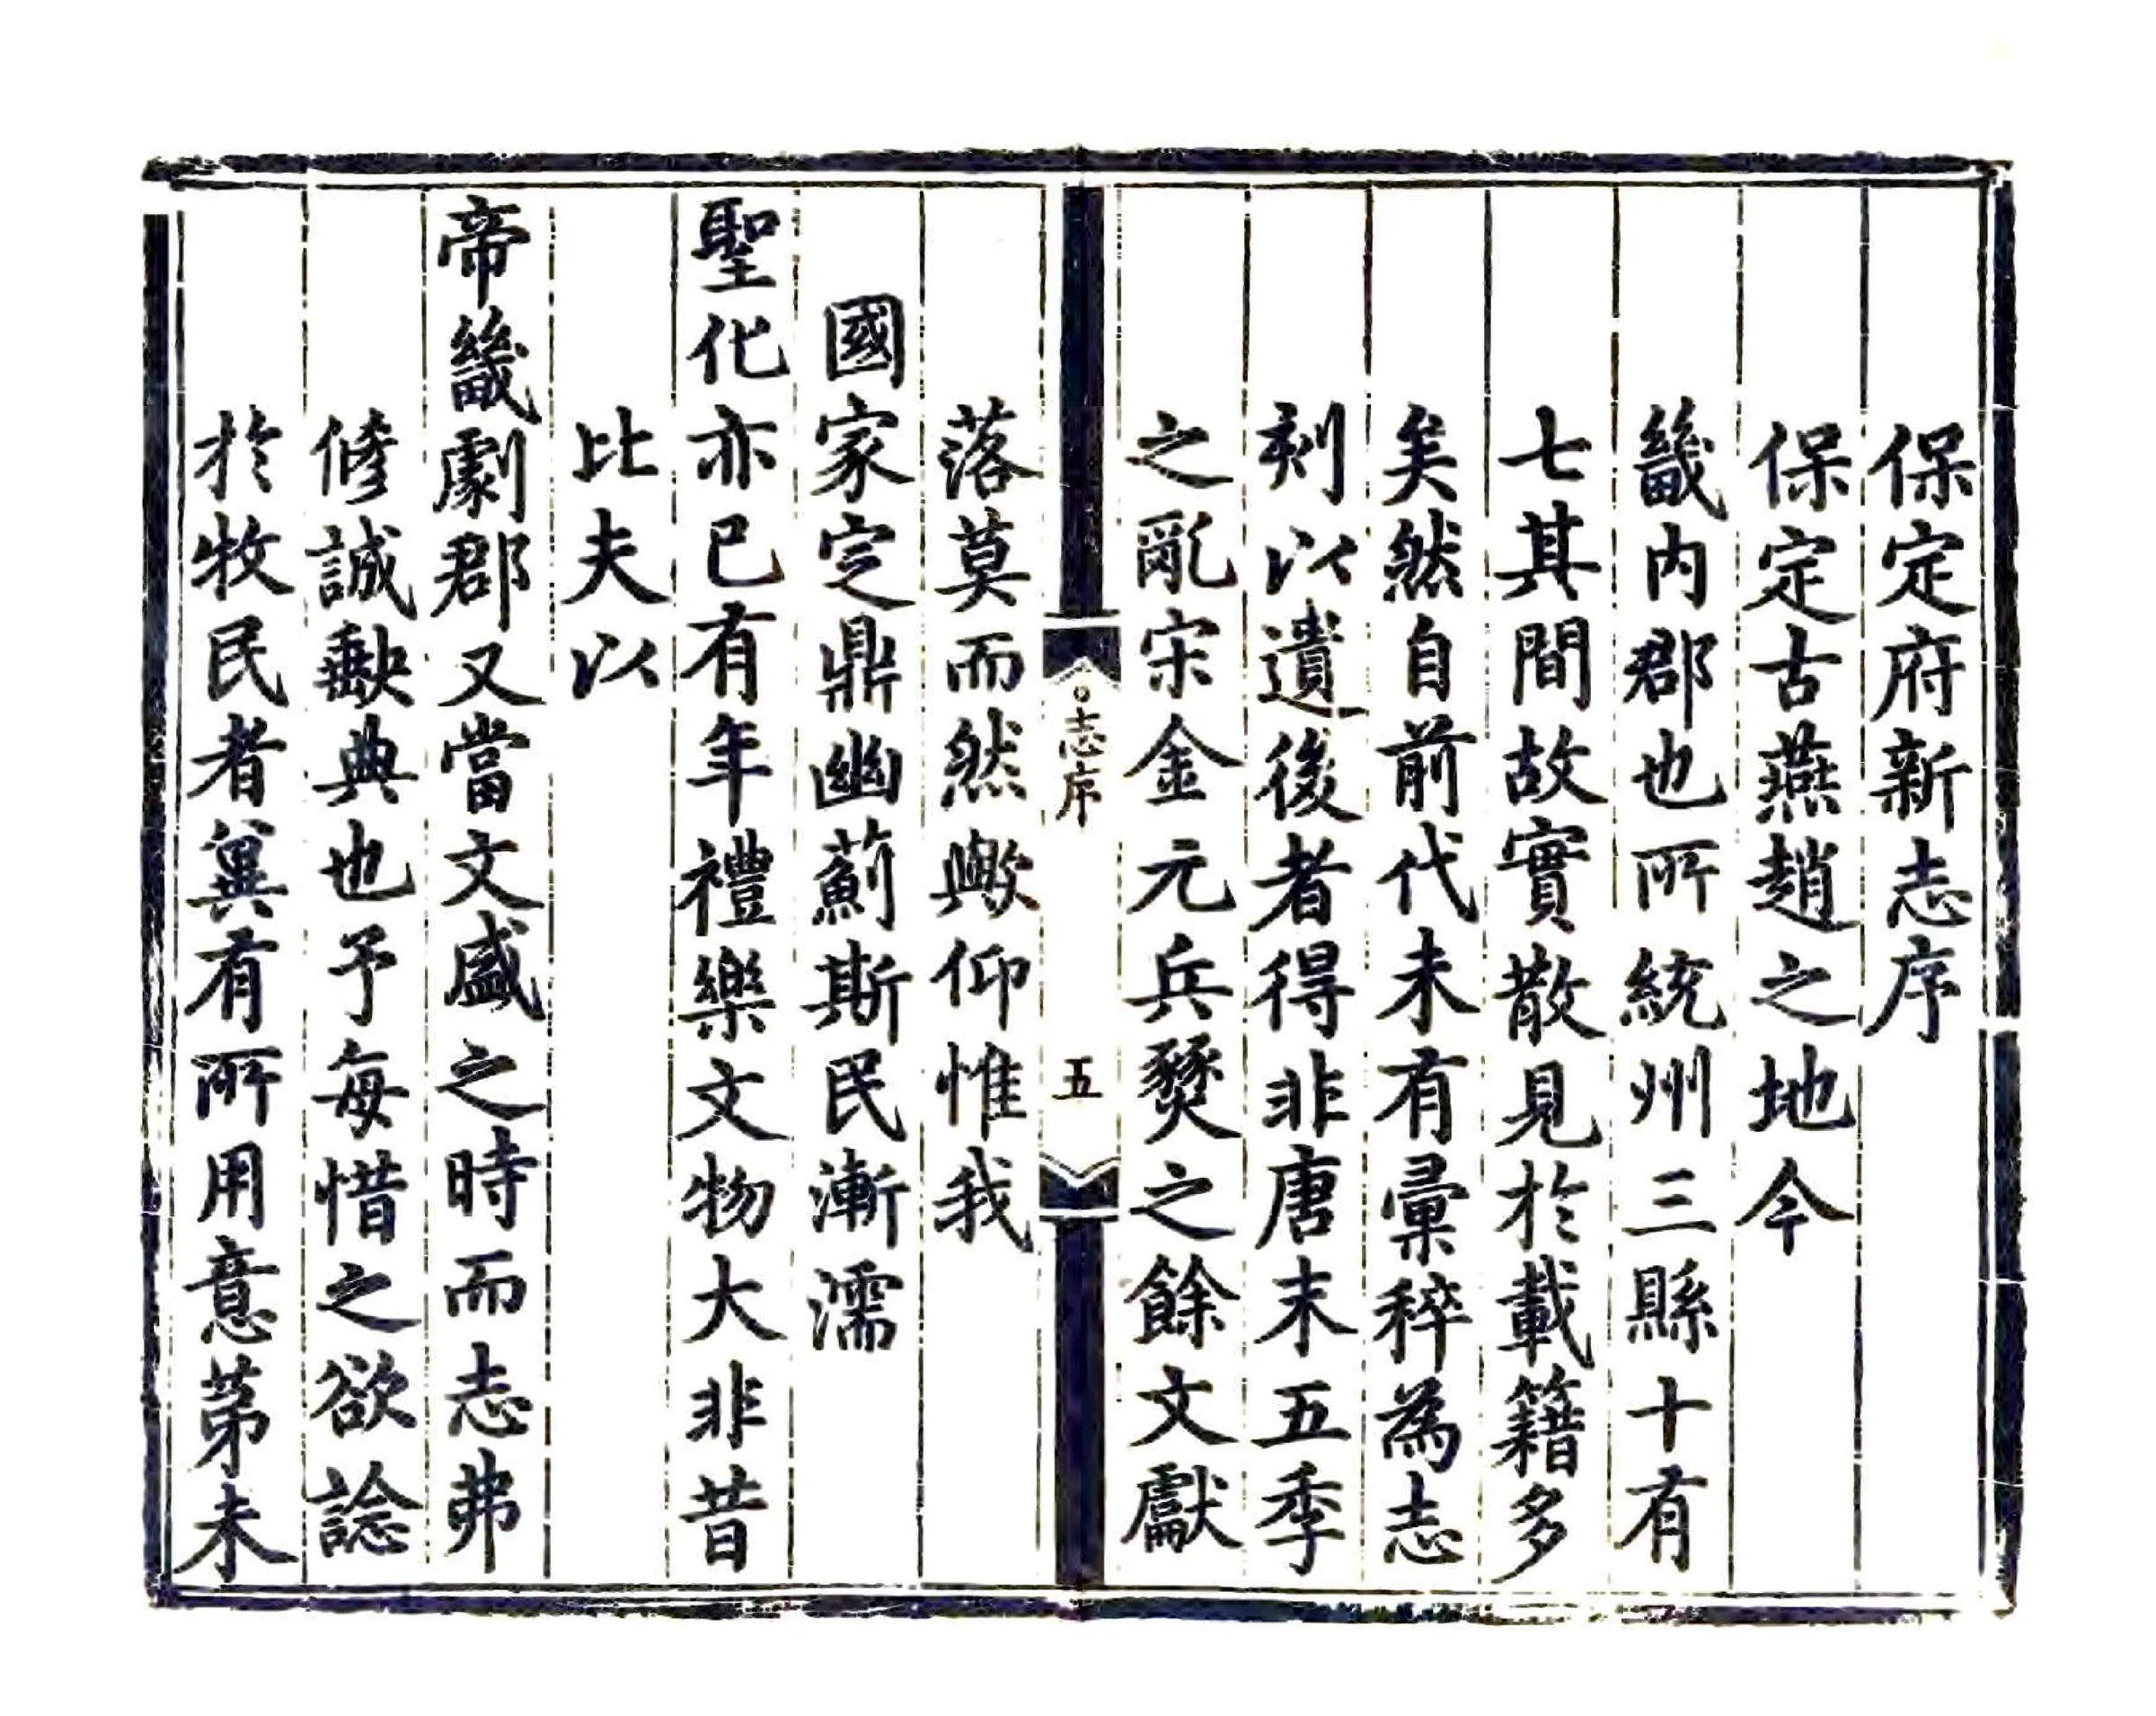 保定府新志序
保定古燕趙之地今
畿內郡也所統州三縣十有
七其間故實散見於載籍多
矣然自前代未有彙稡為志
刻以遺後者得非唐末五季
之亂宋金元兵燹之餘文獻
志序
五
落莫而然歟仰惟我
國家定鼎幽薊斯民漸濡
聖化亦已有年禮樂文物大非昔
比夫以
帝畿劇郡又當文盛之時而志弗
脩誠歝典也予每惜之欲諗
於牧民者冀有所用意苐未